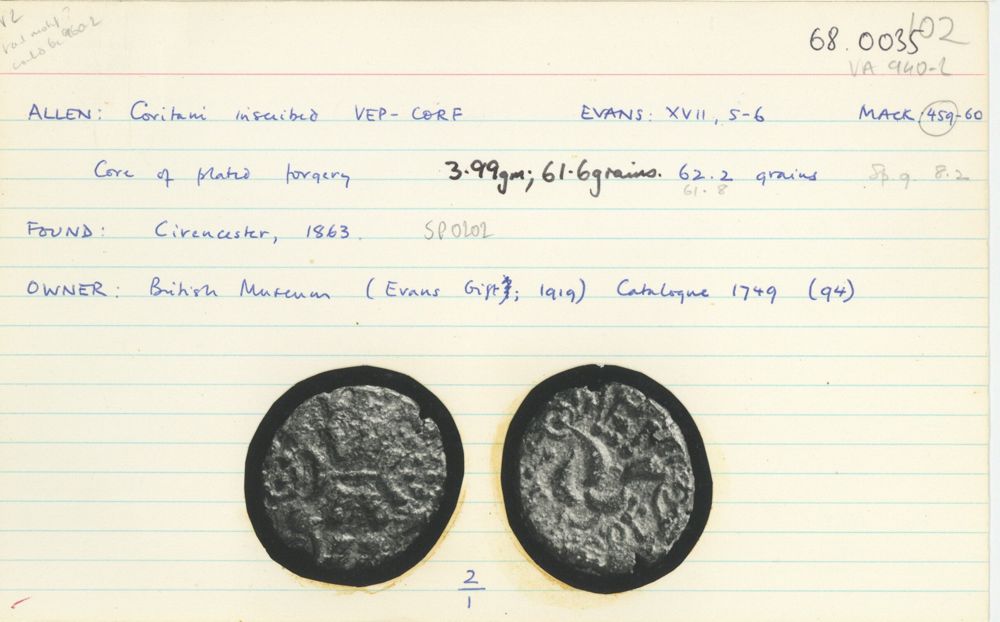 V2
could be 960-2
68.0035
102
VA 940-2
ALLEN: Coritani inscribed VEP-CORF EVANS: XVII, 5-6 MACK 459-60
Core of plated forgery 3.99gm; 61.6grains. 62.2 grains Sp.g. 8.2
61.8
FOUND: Cirencester, 1863. SP0202
OWNER: British Museum (Evans Gift; 1919) Catalogue 1749 (94)
2
1